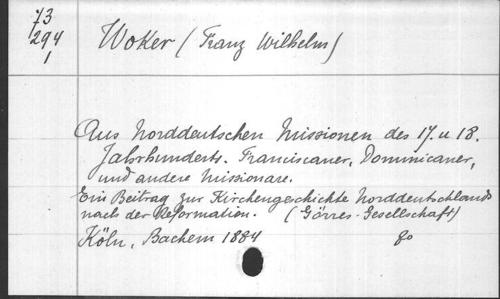 73
294
1
Woker (Franz Wilhelm)
Aus Norddeutschen Missionen des 17. u 18.
Jahrhunderts. Franciscaner, Dominicaner,
und andere Missionare.
Ein Beitrag zur Kirchengeschichte Norddeutschlands
nach der Reformation. (Görres-Gesellschaft)
Köln, Bachem 1884 8o